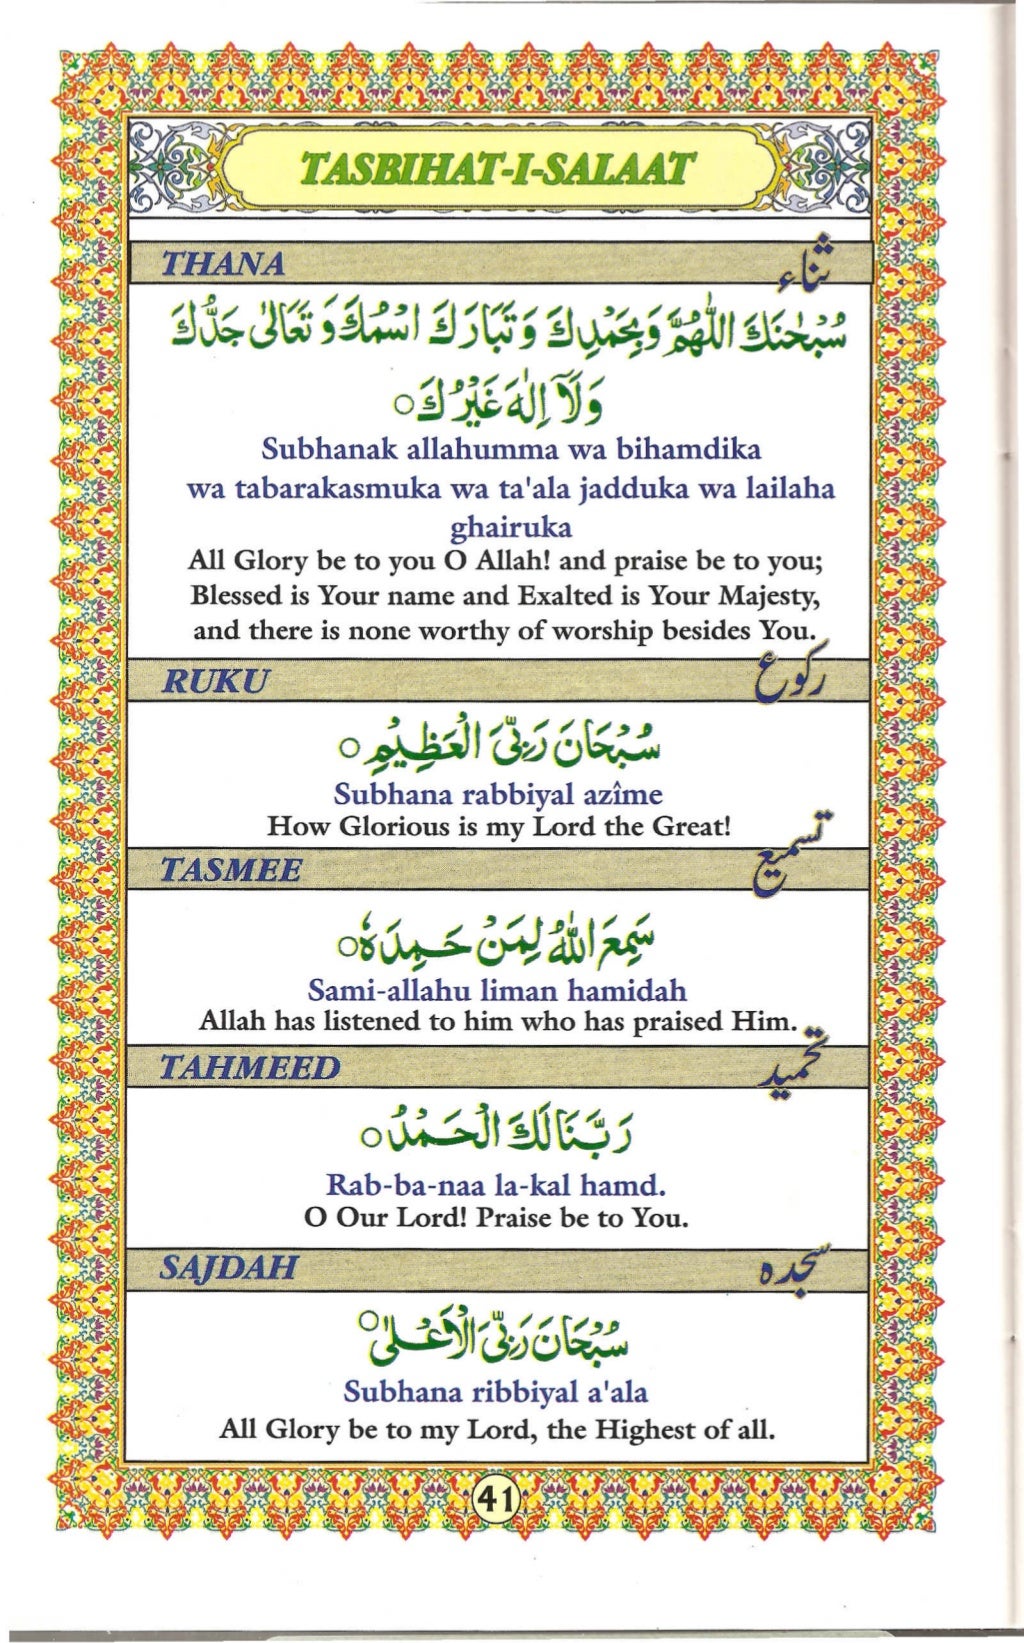 TASBIHAT-I-SALAAT
THANA ثناء
سُبْحٰنَكَ اللّٰهُمَّ وَبِحَمْدِكَ وَتَبَارَكَ اسْمُكَ وَتَعَالٰى جَدُّكَ
وَلَآ اِلٰهَ غَيْرُكَ○
Subhanak allahumma wa bihamdika
wa tabarakasmuka wa ta'ala jadduka wa lailaha
ghairuka
All Glory be to you O Allah! and praise be to you;
Blessed is Your name and Exalted is Your Majesty,
and there is none worthy of worship besides You.
RUKU رکوع
سُبْحَانَ رَبِّيَ الْعَظِيْمِ○
Subhana rabbiyal azîme
How Glorious is my Lord the Great!
TASMEE تسمیع
سَمِعَ اللّٰهُ لِمَنْ حَمِدَهٗ○
Sami-allahu liman hamidah
Allah has listened to him who has praised Him.
TAHMEED تحمید
رَبَّنَا لَكَ الْحَمْدُ○
Rab-ba-naa la-kal hamd.
O Our Lord! Praise be to You.
SAJDAH سجدہ
سُبْحَانَ رَبِّيَ الْاَعْلٰى○
Subhana ribbiyal a'ala
All Glory be to my Lord, the Highest of all.
41